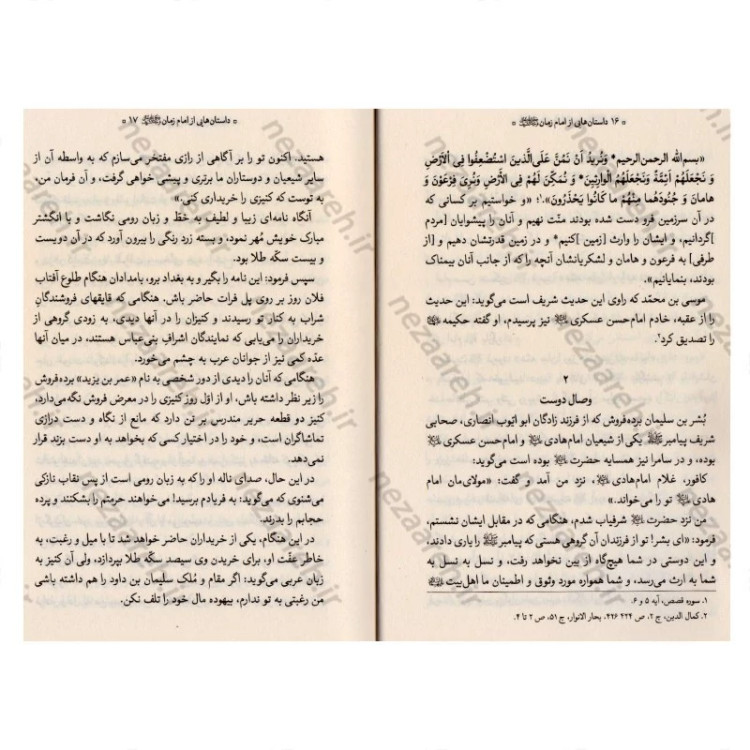 * ۱۶ داستان‌هایی از امام زمان ﷺ *
«بسم‌الله الرحمن الرحیم* وَنُریدُ اَنْ نَمُنَّ عَلَی الَّذینَ اسْتُضْعِفُوا فِی الْاَرْضِ
وَ نَجْعَلَهُمْ اَئِمَّةً وَنَجْعَلَهُمُ الْوارِثینَ* وَ نُمَکِّنَ لَهُمْ فِی الْاَرْضِ وَنُرِیَ فِرْعَوْنَ وَ
هامانَ وَ جُنُودَهُما مِنْهُمْ ما کانُوا یَحْذَرُونَ».۱؛ «و خواستیم بر کسانی که
در آن سرزمین فرو دست شده بودند منّت نهیم و آنان را پیشوایان [مردم
]گردانیم، و ایشان را وارث [زمین ]کنیم* و در زمین قدرتشان دهیم و [از
طرفی] به فرعون و هامان و لشکریانشان آنچه را که از جانب آنان بیمناک
بودند، بنمایانیم».
موسی بن محمّد که راوی این حدیث شریف است می‌گوید: این حدیث
را از عقبه، خادم امام حسن عسکری نیز پرسیدم، او گفته حکیمه
را تصدیق کرد.۲
۲
وصال دوست
بُشر بن سلیمان برده‌فروش که از فرزند زادگان ابو ایّوب انصاری، صحابی
شریف پیامبر ﷺ یکی از شیعیان امام هادی و امام حسن عسکری
بوده، و در سامرا نیز همسایه حضرت بوده است می‌گوید:
کافور، غلام امام هادی، نزد من آمد و گفت: «مولای‌مان امام
هادی تو را می‌خواند.»
من نزد حضرت شرفیاب شدم، هنگامی که در مقابل ایشان نشستم،
فرمود: «ای بشر! تو از فرزندان آن گروهی هستی که پیامبر ﷺ را یاری دادند،
و این دوستی در شما هیچ‌گاه از بین نخواهد رفت، و نسل به نسل به
شما به ارث می‌رسد، و شما همواره مورد وثوق و اطمینان ما اهل بیت
۱. سوره قصص، آیه ۵ و ۶.
۲. کمال الدین، ج ۲، ص ۴۲۴ ۴۲۶. بحار الانوار، ج ۵۱، ص ۲ تا ۴.
* داستان‌هایی از امام زمان ﷺ ۱۷ *
هستید. اکنون تو را بر آگاهی از رازی مفتخر می‌سازم که به واسطه آن از
سایر شیعیان و دوستاران ما برتری و پیشی خواهی گرفت، و آن فرمان من،
به توست که کنیزی را خریداری کنی.»
آنگاه نامه‌ای زیبا و لطیف به خطّ و زبان رومی نگاشت و با انگشتر
مبارک خویش مُهر نمود، و بسته زرد رنگی را بیرون آورد که در آن دویست
و بیست سکّه طلا بود.
سپس فرمود: این نامه را بگیر و به بغداد برو، بامدادان هنگام طلوع آفتاب
فلان روز بر روی پل فرات حاضر باش. هنگامی که قایقهای فروشندگانِ
شراب به کنار تو رسیدند و کنیزان را در آنها دیدی، به زودی گروهی از
خریداران را می‌یابی که نمایندگان اشراف بنی‌عباس هستند، در میان آنها
عدّه کمی نیز از جوانان عرب به چشم می‌خورد.
هنگامی که آنان را دیدی از دور شخصی به نام «عمر بن یزید» برده‌فروش
را زیر نظر داشته باش، او از اوّل روز کنیزی را در معرض فروش نگه می‌دارد،
کنیز دو قطعه حریر مندرس بر تن دارد که مانع از نگاه و دست درازی
تماشاگران است، و خود را در اختیار کسی که بخواهد به او دست بزند قرار
نمی‌دهد.
در این حال، صدای ناله او را که به زبان رومی است از پس نقاب نازکی
می‌شنوی که می‌گوید: به فریادم برسید! می‌خواهند حرمتم را بشکنند و پرده
حجابم را بدرند.
در این هنگام، یکی از خریداران حاضر خواهد شد تا با میل و رغبت، به
خاطر عفّت او، برای خریدن وی سیصد سکّه طلا بپردازد، ولی آن کنیز به
زبان عربی می‌گوید: اگر مقام و مُلک سلیمان بن داود را هم داشته باشی
من رغبتی به تو ندارم، بیهوده مال خود را تلف نکن.
nezaareh.ir
nezaareh.ir
nezaareh.ir
nezaareh.ir